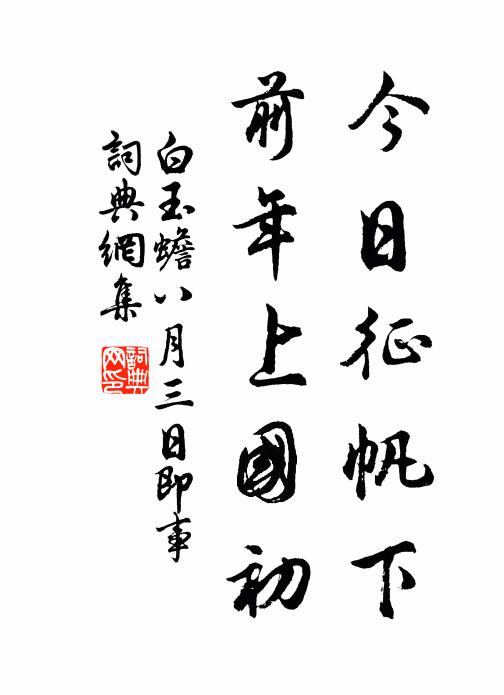 今日征帆下
前年上國初
白玉蟾八月三日即事
詞典網集
詞典網印